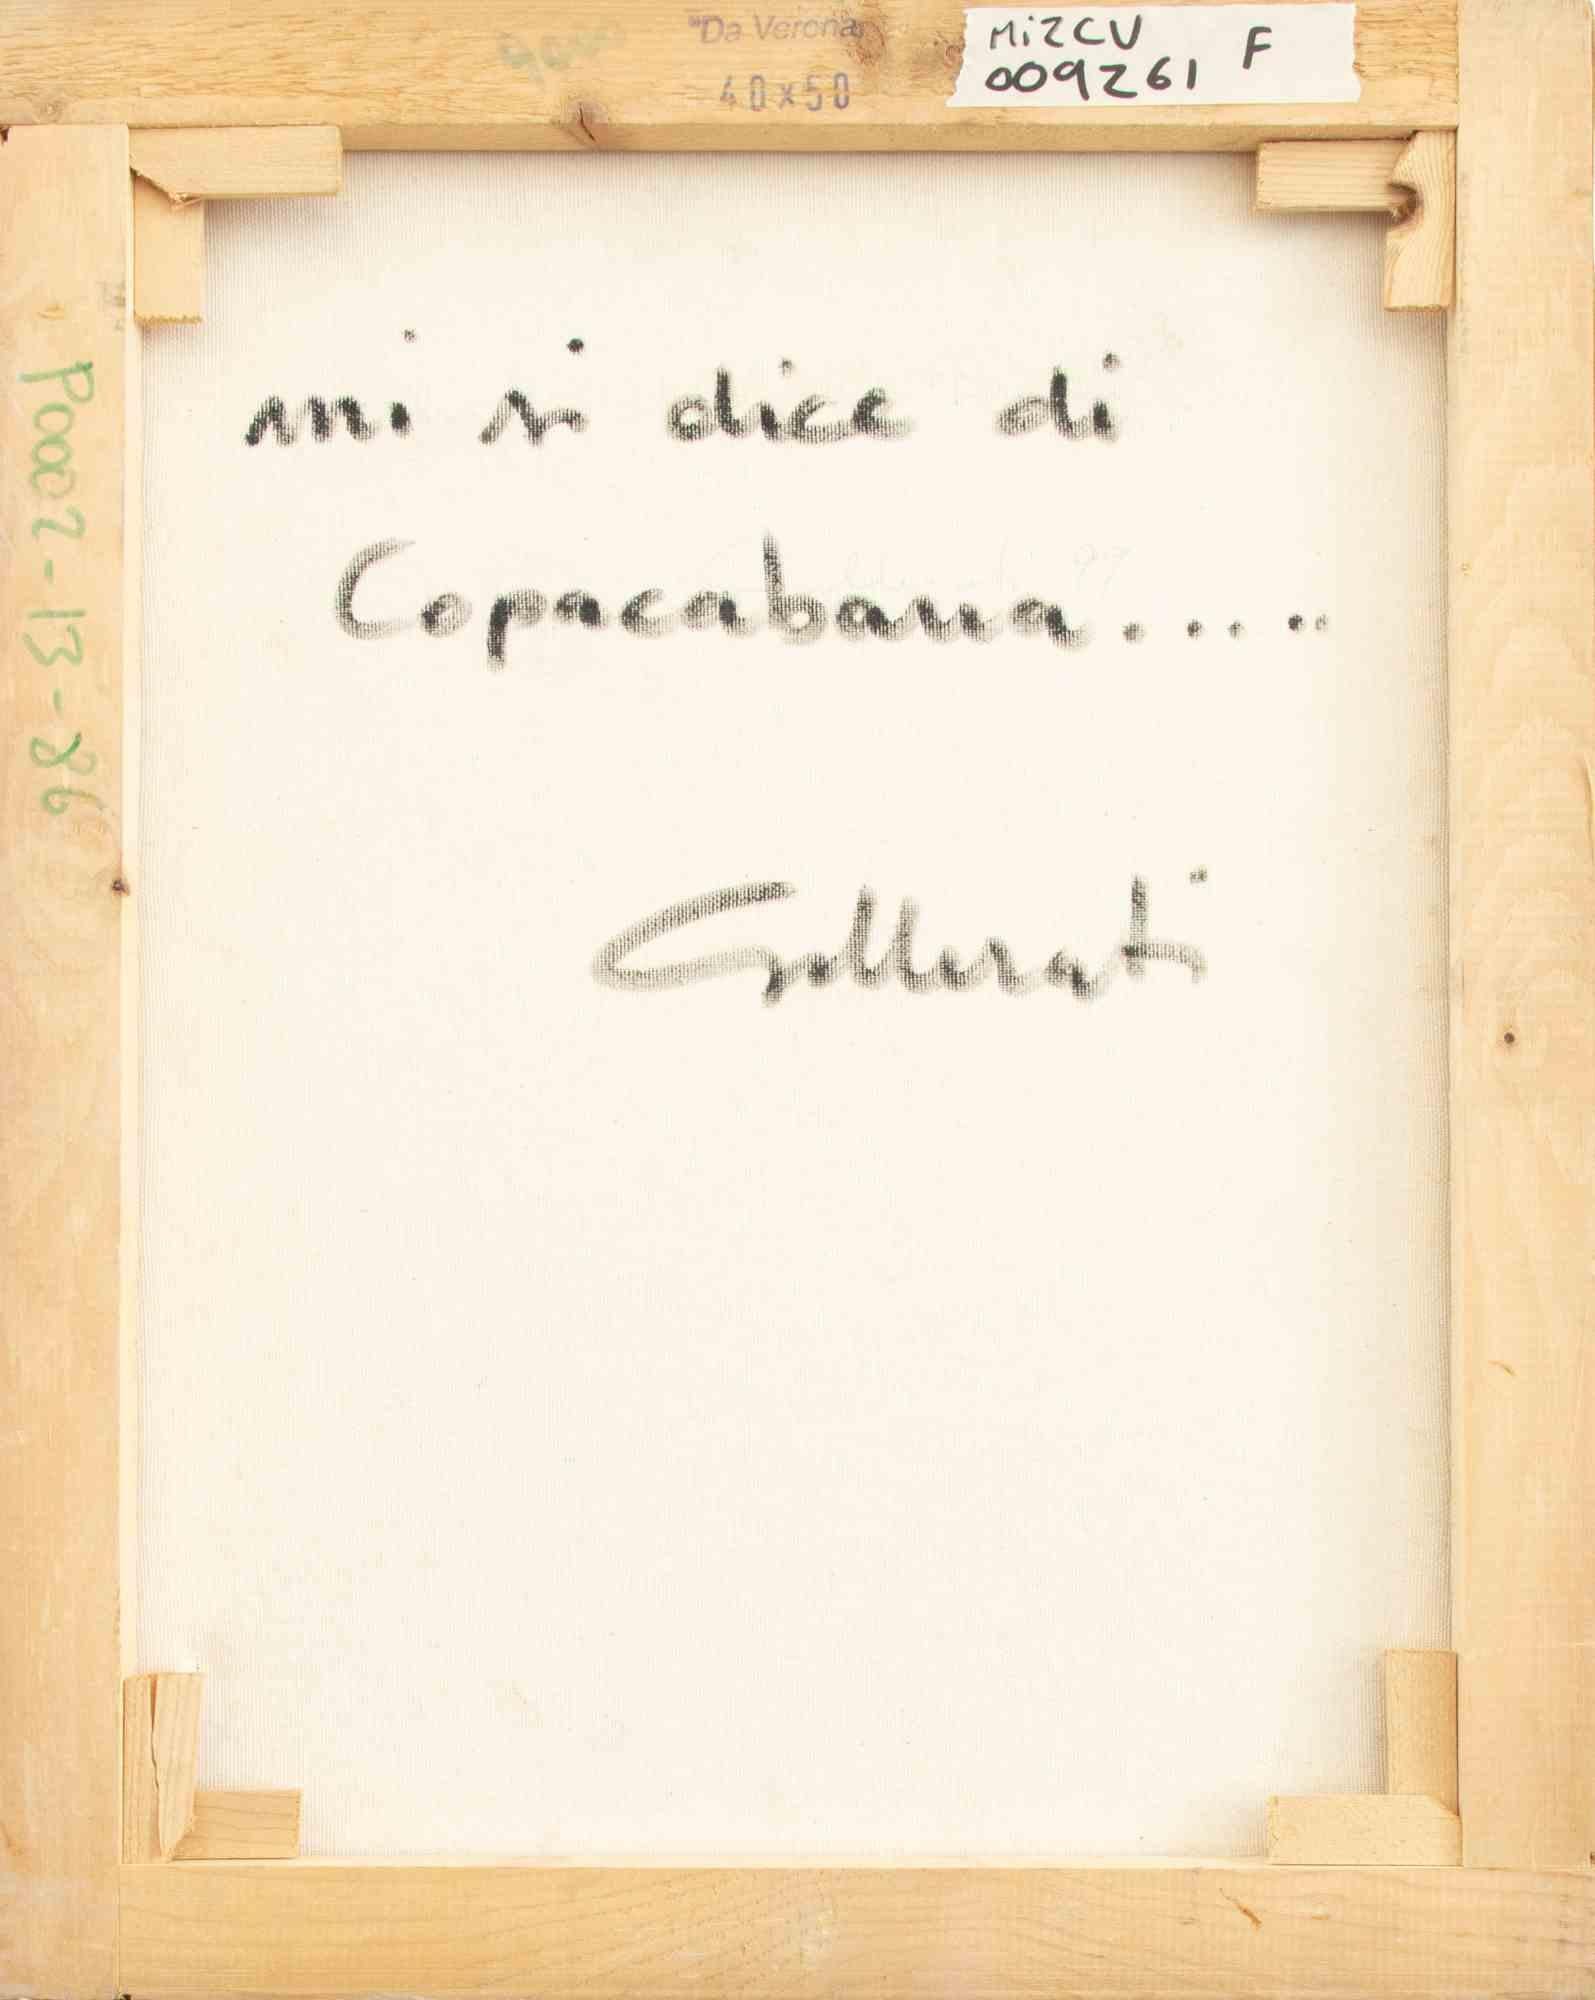 "Da Verona"
40x50
MiZCV F
009261
P0002-13-86
mi si dice di
Copacabana.....
Gollerati